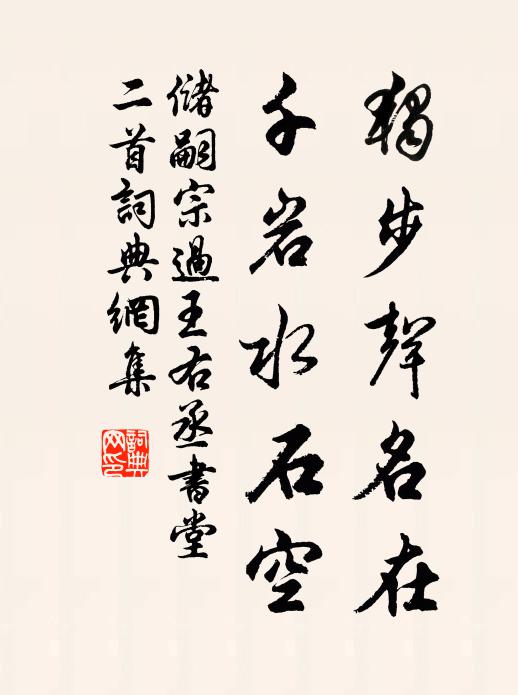 獨步聲名在
千岩水石空
儲嗣宗過王右丞書堂
二首詞典網集
詞典網印